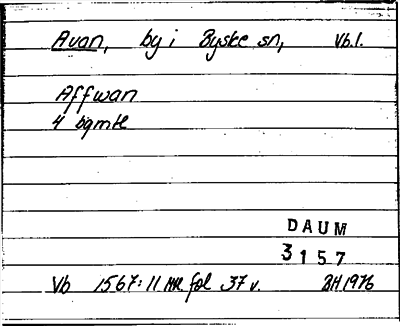 Avan, by i Byske sn, Vb.l.
Affwan
4 bgmte
DAUM
3157
Vb 1567:11 fol 37 v. BH 1976